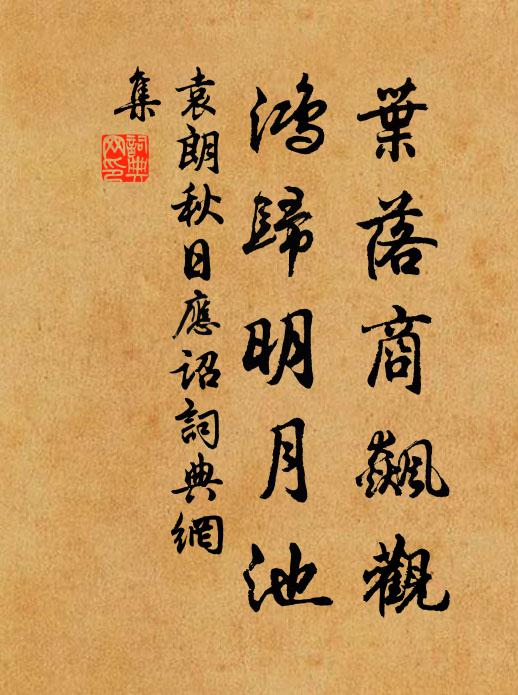 葉落商飆觀
鴻歸明月池
袁朗秋日應詔詞典網
集
詞典
网印